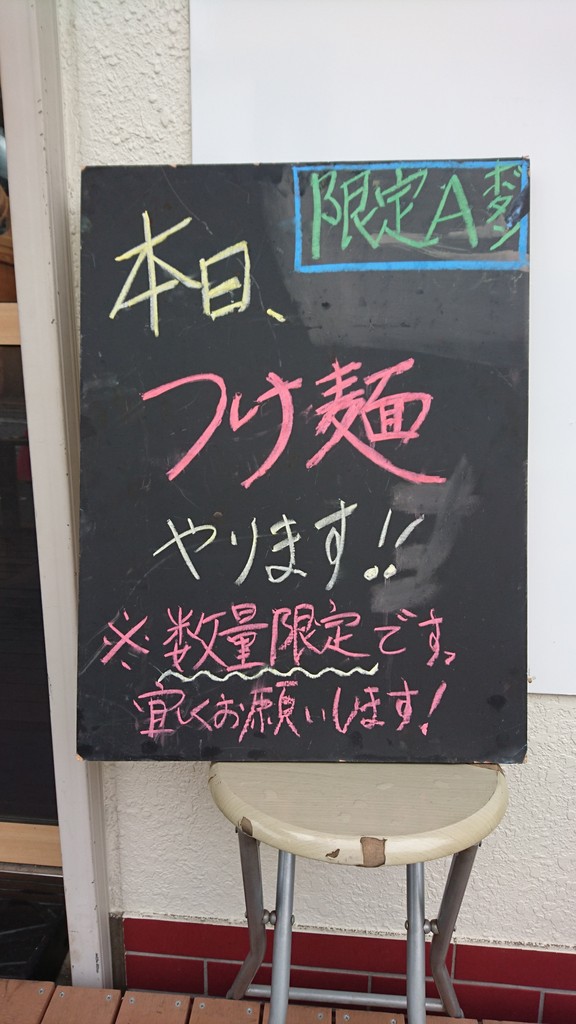 限定Aボタン
本日、
つけ麺
やります!!
※数量限定です。
宜しくお願いします!